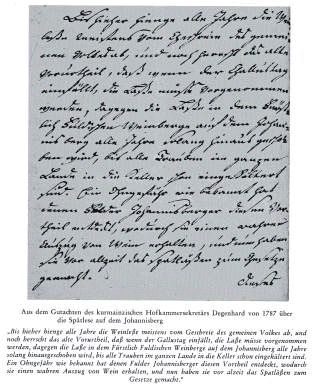 Bis hieher hienge alle Jahre die
meistens vom Geschreie des gemei-
nen Volkes ab, und noch herrscht das alte
Vorurtheil, daß wenn der Gallustag
einfällt, die Läße müste vorgenommen
werden, dagegen die Läße in dem Fürst-
lich Fuldischen Weinberge auf dem Johan-
nisberg alle Jahre solang hinausgescho-
ben wird, bis alle Trauben im ganzen
Land in die Keller schon eingekältert
sind. Ein Ohngefähr wie bekannt hat
denen Fulder Johannisberger diesen Vor-
theil entdekt, wodurch sie einen wahren
Auszug von Wein erhalten, und nun haben
sie vor allzeit das Spätläßen zum Gesetze
gemacht.
Dieses
Aus dem Gutachten des kurmainzischen Hofkammersekretärs Degenhard von 1787 über
die Spätlese auf dem Johannisberg
„Bis hieher hienge alle Jahre die Weinlese meistens vom Geschreie des gemeinen Volkes ab, und
noch herrscht das alte Vorurtheil, daß wenn der Gallustag einfällt, die Läße müsse vorgenommen
werden, dagegen die Laße in dem Fürstlich Fuldischen Weinberge auf dem Johannisberg alle Jahre
solang hinausgeschoben wird, bis alle Trauben im ganzen Lande in die Keller schon eingekältert sind.
Ein Ohngefähr wie bekannt hat denen Fulder Johannisberger diesen Vortheil entdeckt, wodurch
sie einen wahren Auszug von Wein erhalt, und nun haben sie vor allzeit das Spatläßen zum
Gesetze gemacht.“